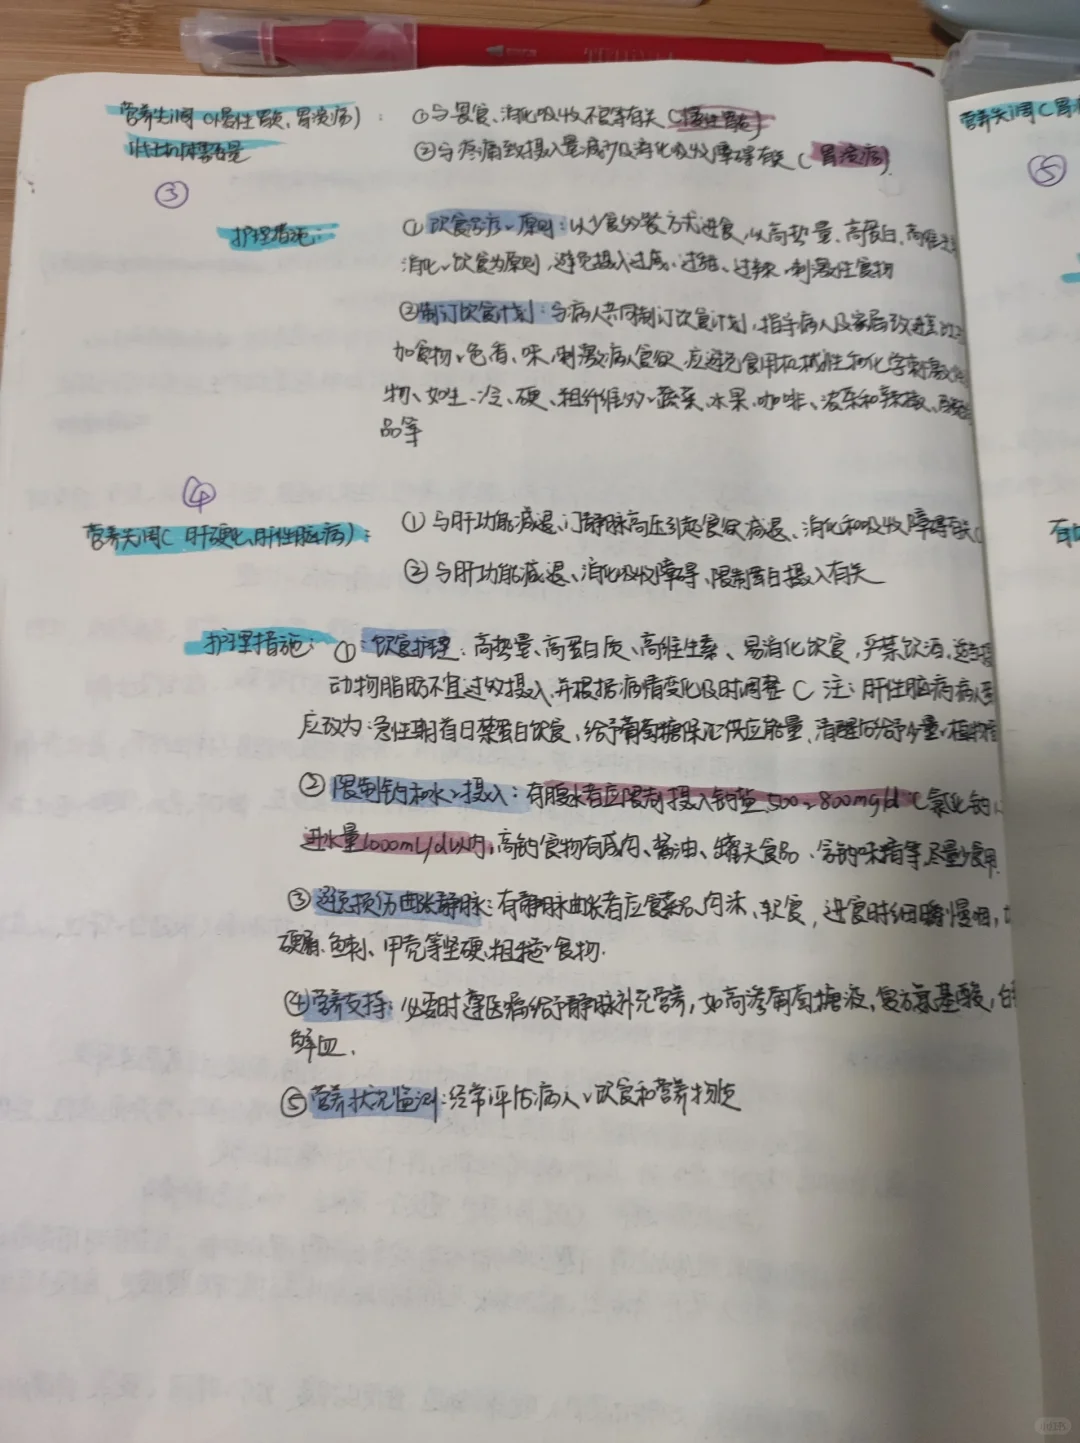 营养失调（慢性胃炎、胃溃疡）：
低于机体需要量
①与畏食、消化吸收不良等有关（慢性胃炎）
②与疼痛致摄入量减少及消化吸收障碍有关（胃溃疡）
③
护理措施：
①饮食治疗、原则：以少食多餐方式进食，以高热量、高蛋白、高维
消化、饮食为原则，避免摄入过咸、过甜、过辣、刺激性食物
②制订饮食计划：与病人共同制订饮食计划，指导病人及家属改进
加食物、色香、味，刺激病人食欲，应避免食用机械性和化学刺激
物、如生、冷、硬、粗纤维多、蔬菜、水果、咖啡、浓茶和辣椒、
品等
④
营养失调（肝硬化、肝性脑病）：
①与肝功能减退、门静脉高压引起食欲减退、消化和吸收障碍有关（
②与肝功能减退、消化吸收障碍、限制蛋白摄入有关
护理措施：①饮食护理：高热量、高蛋白质、高维生素、易消化饮食，严禁饮酒，适当摄
动物脂肪不宜过多摄入，并根据病情变化及时调整（注：肝性脑病病人
应改为：急性期首日禁蛋白饮食、给予葡萄糖保证供应能量，清醒后给予少量、植物
②限制钠和水、摄入：有腹水者应限制摄入钠盐500~800mg/d（氯化钠
进水量1000mL/d以内，高钠食物有咸肉、酱油、罐头食品、含钠味精等，尽量少食用
③避免损伤曲张静脉：有静脉曲张者应食菜泥、肉沫、软食，进食时细嚼慢咽，
硬屑、鱼刺、甲壳等坚硬、粗糙、食物.
④营养支持：必要时遵医嘱给予静脉补充营养，如高渗葡萄糖液，复方氨基酸，白
鲜血.
⑤营养状况监测：经常评估病人、饮食和营养物质
营养失调（胃
⑤
有